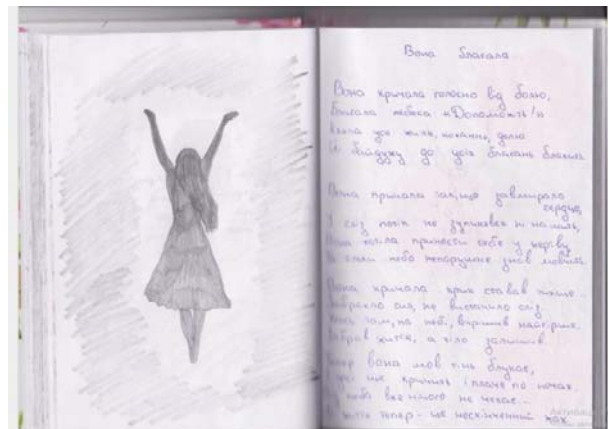 Вона благала
Вона кричала голосно від болю,
Благала небеса: «Допоможіть!»
усе життя, кохання, долю
Й байдужу до усіх благань
Вона кричала так, що завмирало
серце,
І сліз потік не зупинявся ні на мить,
Вона хотіла принести себе у жертву,
небо непорушне знов мовчить
Вона кричала крик ставав тихіше...
Забракло сил, не вистачило сліз
там, на небі, вирішив найгірше.
Забрав життя, а тіло залишив.
Тепер вона мов тінь блукає,
не кричить і плаче по ночах
неба вже нічого не чекає...
життя тепер - це нескінченний жах